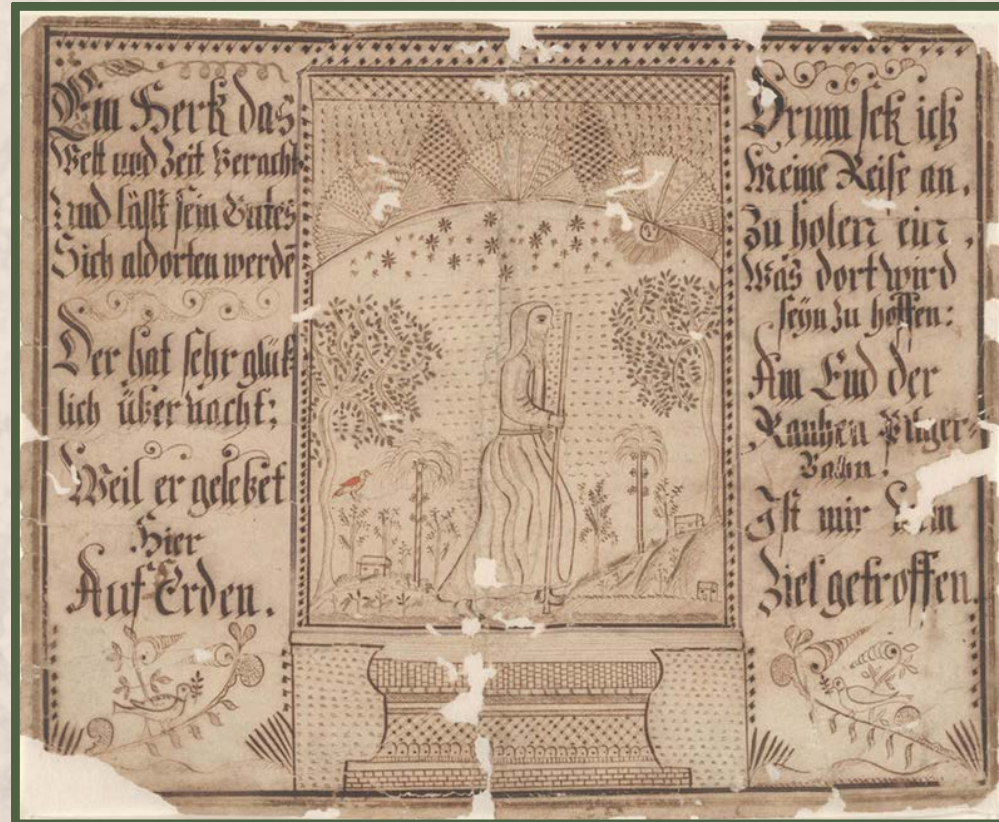 Ein Hertz das
Welt und Zeit veracht
Und läßt sein Gutes
Sich aldorten werdē
Der hat sehr glük
lich übernacht;
Weil er gelebet
Hier
Auf Erden.
Drum setz ich
Meine Reise an,
Zu holen ein,
Was dort wird
seyn zu hoffen:
Am End der
Rauhen Pilger-
Bahn.
Ist mir
Ziel getroffen.